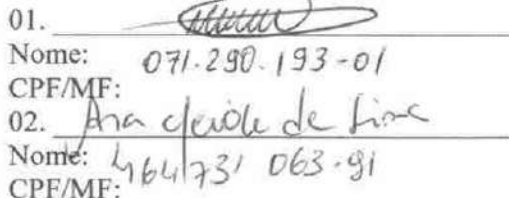 01.
Nome: 071.290.193-01
CPF/MF:
02. Ana cleide de Lima
Nome: 464731 063-91
CPF/MF: